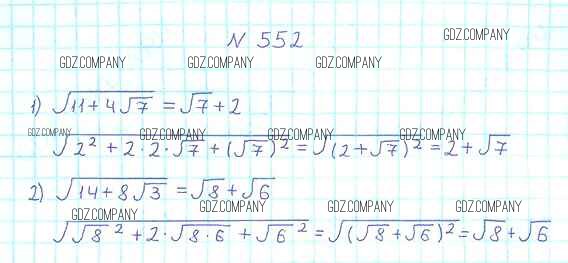 N 552
GDZ.COMPANY
GDZ.COMPANY GDZ.COMPANY GDZ.COMPANY
1) √(11+4√7) = √7+2
GDZ.COMPANY GDZ.COMPANY GDZ.COMPANY GDZ.COMPANY
√(2² + 2·2·√7 + (√7)²) = √((2+√7)²) = 2+√7
2) √(14+8√3) = √8+√6
GDZ.COMPANY GDZ.COMPANY GDZ.COMPANY GDZ.COMPANY
√(√8² + 2·√(8·6) + √6²) = √((√8+√6)²) = √8+√6